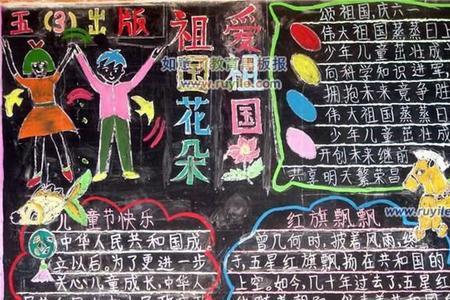 五(3)出版
祖国花朵
爱祖国
颂祖国,庆六一
伟大祖国蒸蒸日上
少年儿童茁壮成
向科学知识进军
拥抱未来竞争胜
伟大祖国蒸蒸日上
少年儿童茁壮成
开创未来继前
共享明天繁荣昌
如意了教育黑板报
www.ruyile.com
www.ruyile.com
儿童节快乐
中华人民共和国成
立以后。为了更进一步
关心儿童成长,中华人
红旗飘飘
曾几何时,披着风雨,
示,五星红旗飘扬在共和国的
上空。如今,几十年过去了,五星